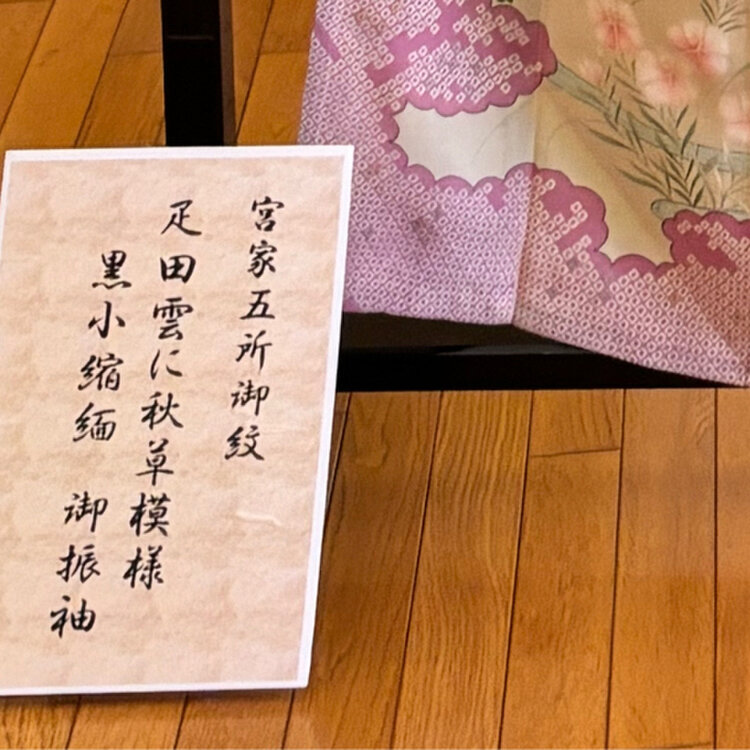 宮家五所御紋
疋田雲に秋草模様
黒小縮緬 御振袖